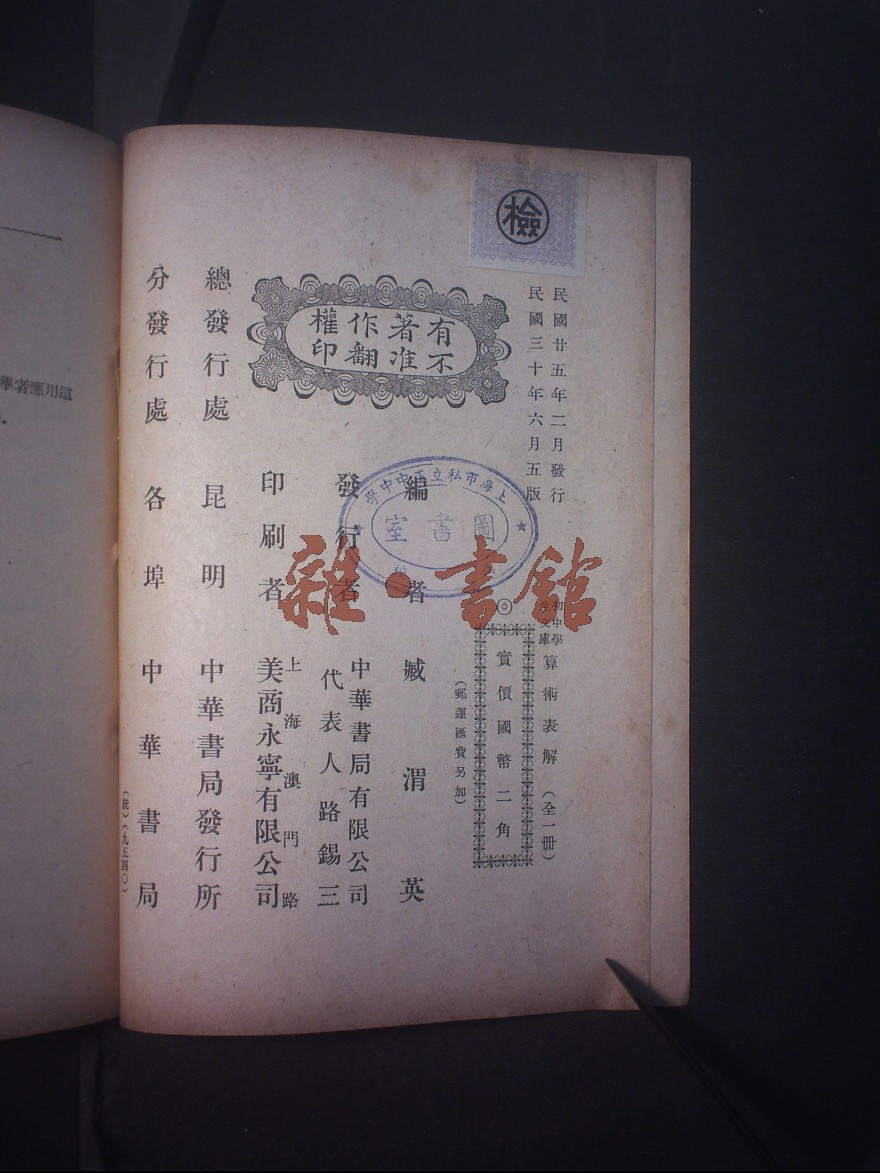 檢
民國廿五年二月發行
民國三十年六月五版
有著作權
不准翻印
初中學生文庫
算術表解（全一冊）
◎實價國幣二角
（郵運匯費另加）
編者 臧渭英
發行者 中華書局有限公司
代表人路錫三
印刷者 上海澳門路
美商永寧有限公司
總發行處 昆明 中華書局發行所
分發行處 各埠 中華書局
（統）（九五四〇）
上海市私立正中中學
圖書室
雜·書館
學者應用這